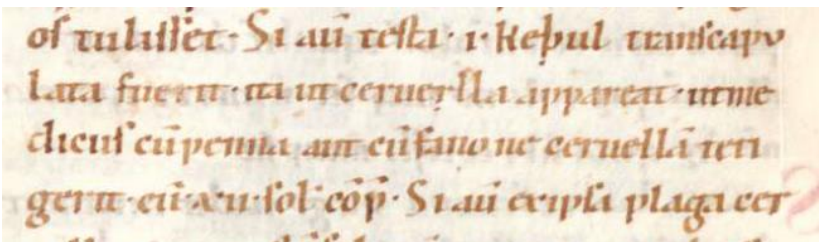 os tulisset· Si aū testa· i· kepul transcapu
lata fuerit· ita ut ceruella appareat· ut me
dicus cū penna aut cū fanone ceruellā teti
gerit· cū· xii· sol· cōp̄· Si aū exipsa plaga cer